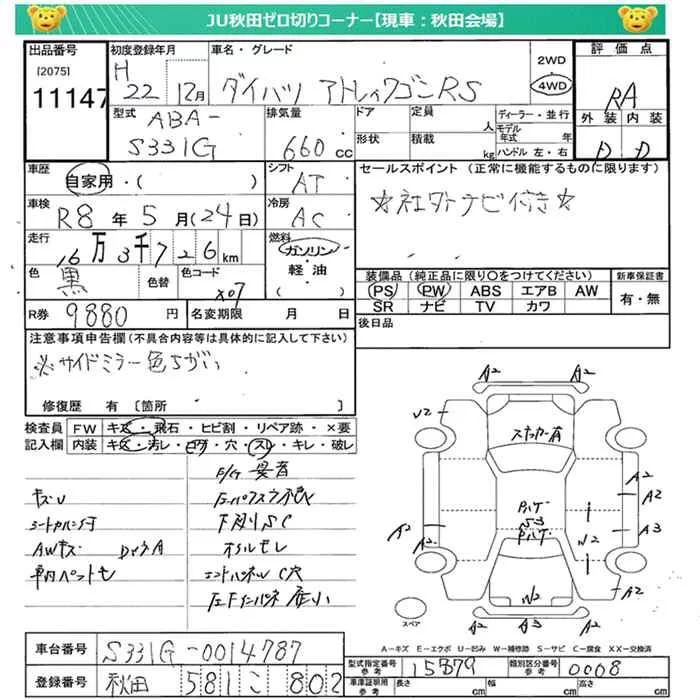 JU秋田ゼロ切りコーナー【現車：秋田会場】
出品番号
[2075]
11147
初度登録年月
H 22 12月
車名・グレード
ダイハツ アトレーワゴンRS
2WD
4WD
評価点
RA
外装 内装
D D
型式
ABA-
S331G
排気量
660 cc
ドア
形状
定員
人
積載
kg
ディーラー・並行
モデル年式 年
ハンドル 左・右
車歴
自家用・( )
シフト
AT
セールスポイント (正常に機能するものに限ります)
☆社外ナビ付き☆
車検
R8 年 5 月 (24日)
冷房
AC
走行
16万3千726 km
燃料
ガソリン・軽油
( )
色
黒
色替
色コード
X07
装備品 (純正品に限り○をつけてください)
PS PW ABS エアB AW
SR ナビ TV カワ
新車保証書
有・無
R券
9880 円
名変期限 月 日
後日品
注意事項申告欄(不具合内容等は具体的に記入して下さい)
※サイドミラー色ちがい
修復歴 有 〔箇所 〕
検査員
記入欄
FW キズ・飛石・ヒビ割・リペア跡・×要
内装 キズ・汚レ・コゲ・穴・スレ・キレ・破レ
キズU
AWキズ
下廻りSC
オイルモレ
エンドパネルC穴
A2 A2
U2
ステッカー有
A2
A2
A3
W2
A2
A2
S3
W2
A2 A2 A2
スペア
A－キズ E－エクボ U－凹み W－補修跡 S－サビ C－腐食 XX－交換済
車台番号
S331G-0014787
登録番号
秋田 581 こ 802
型式指定番号 参考
15879
類別区分番号 参考
0008
車庫証明用 参考
長さ cm
幅 cm
高さ cm